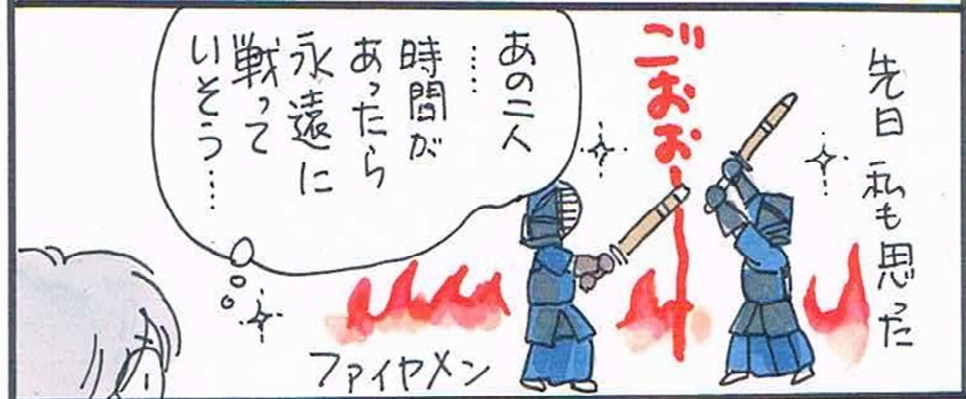 先日 私も思った
ごおぉー
あの二人
……
時間が
あったら
永遠に
戦って
いそう……
ファイヤメン